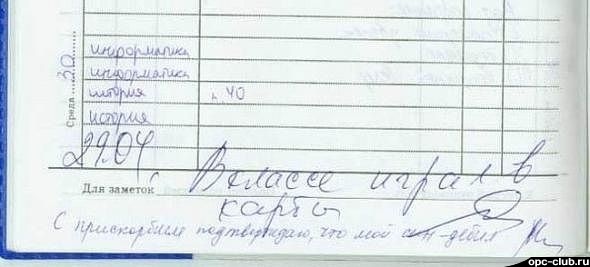 Среда 30
информатика
информатика
история с 40
история
29.04.
В классе играл в
Для заметок
карты
С прискорбием подтверждаю, что мой сын - дебил
opc-club.ru